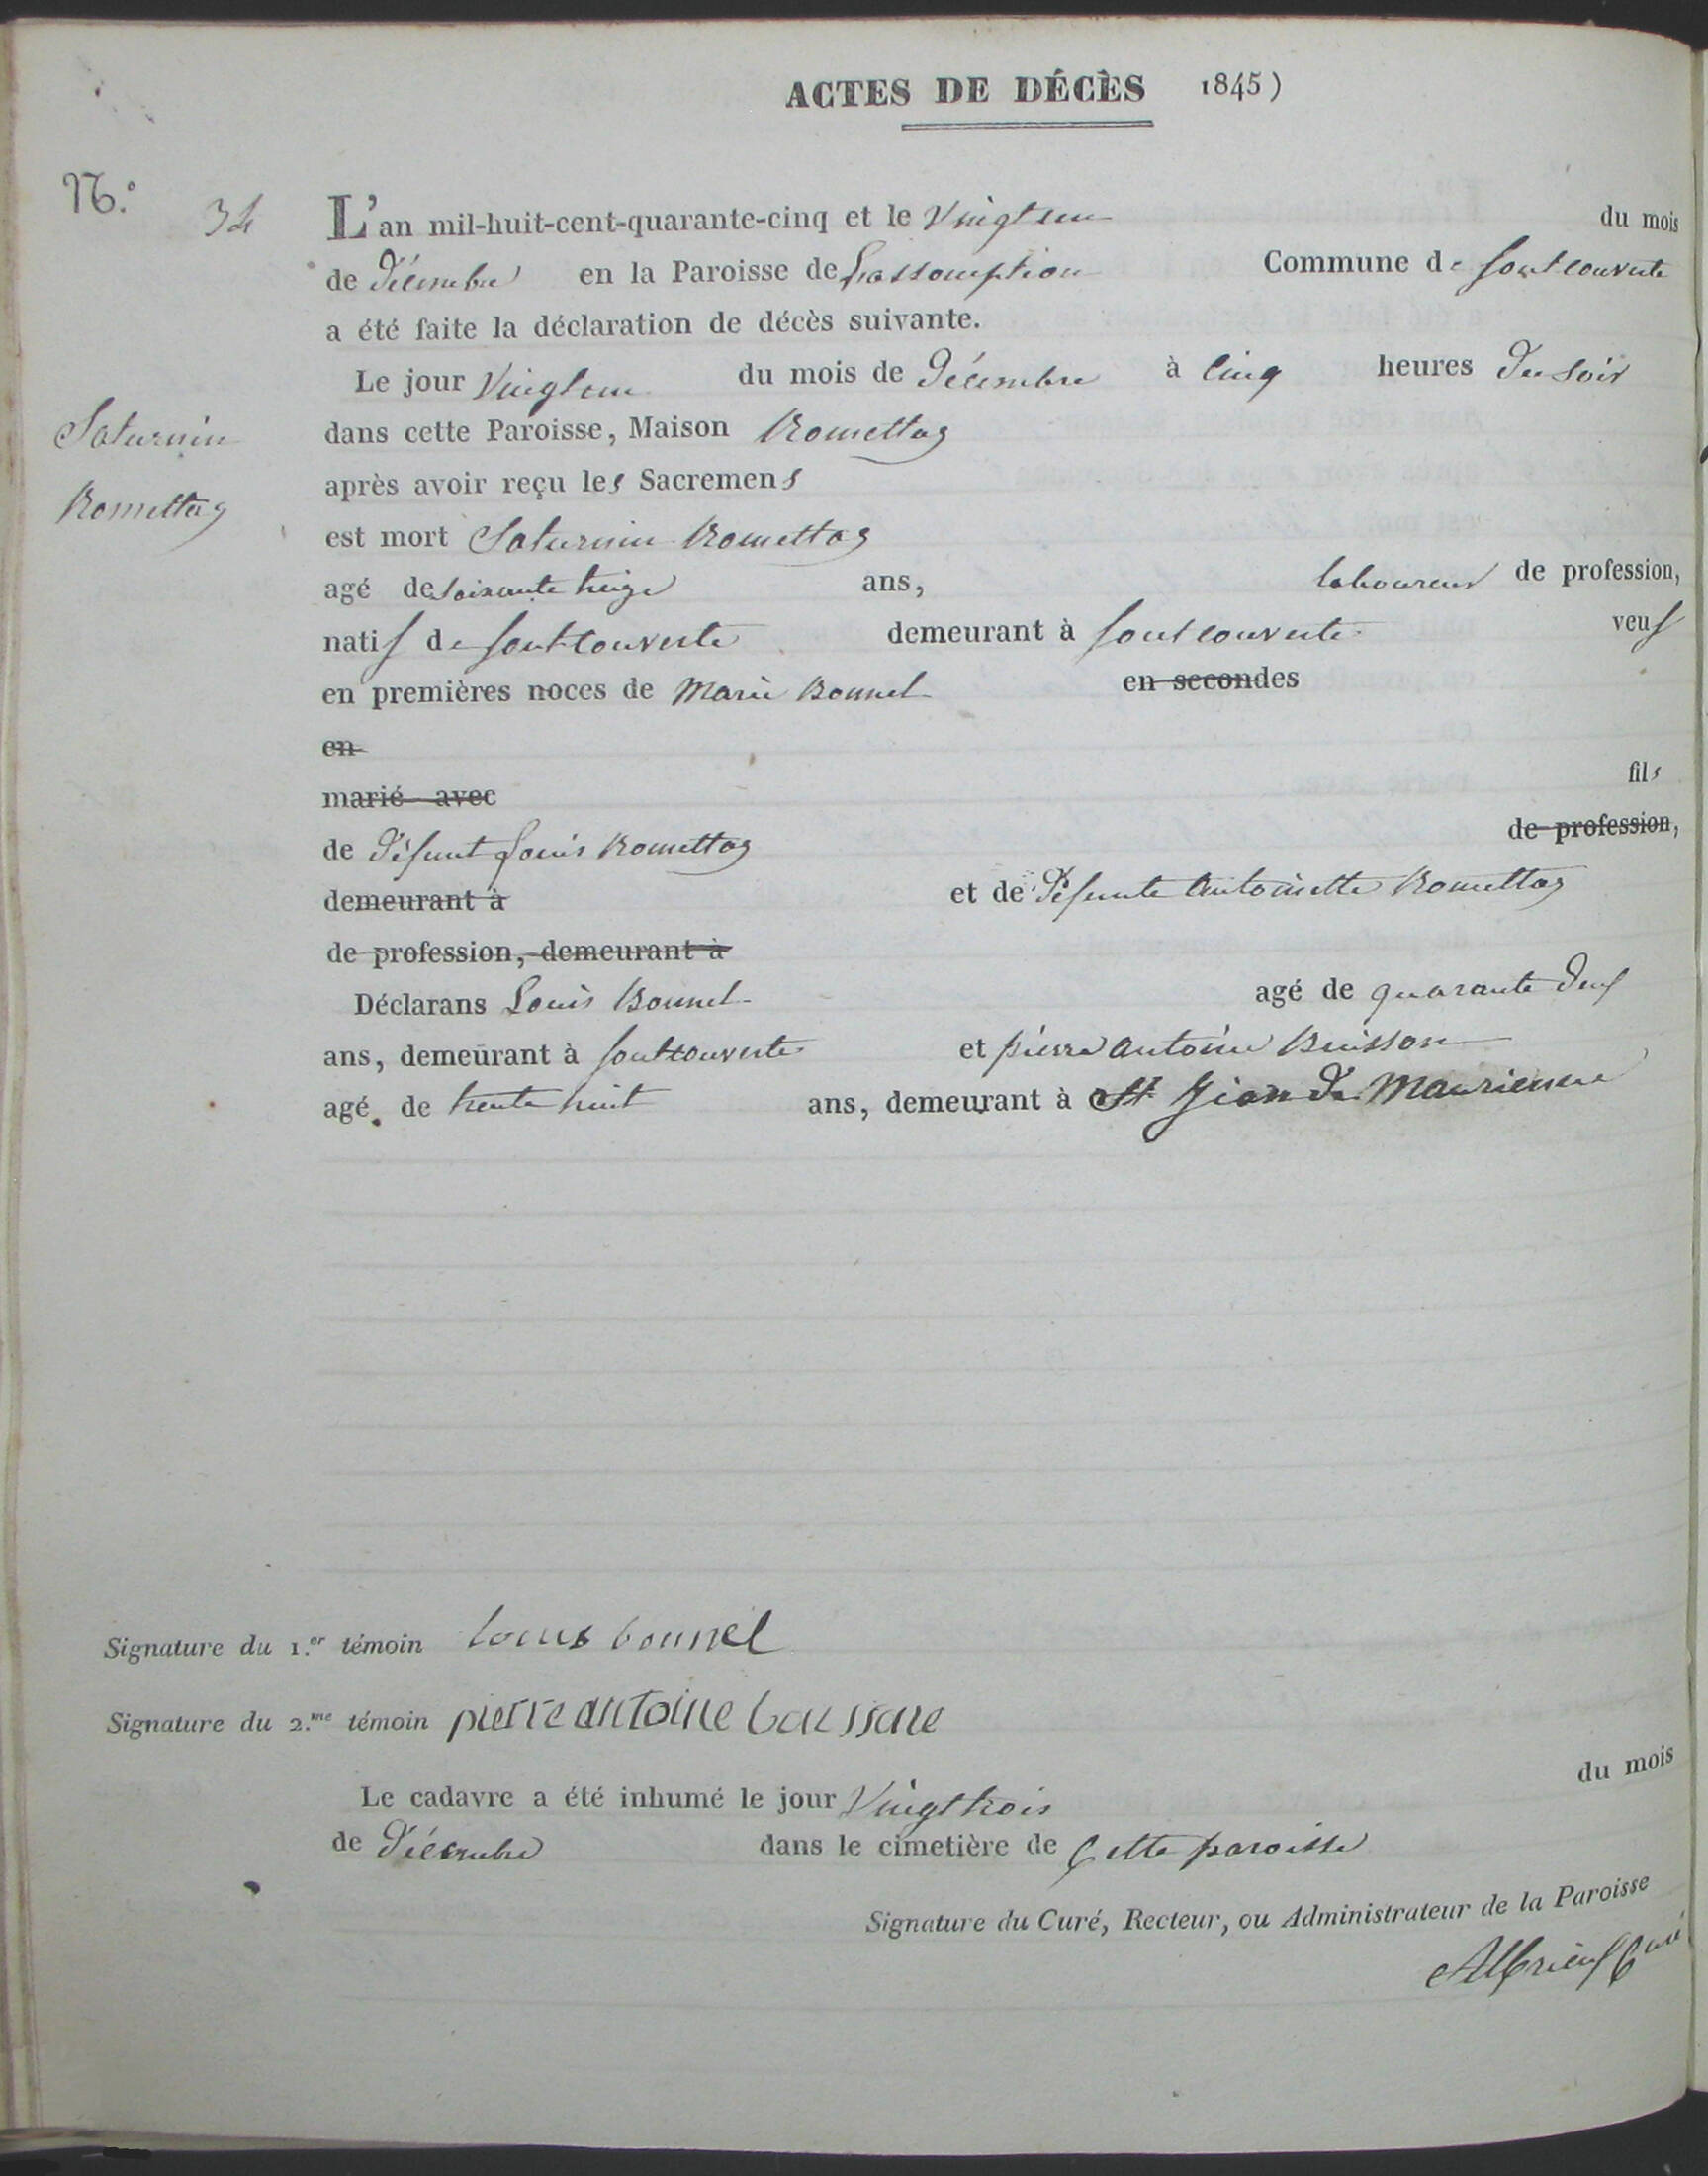 ACTES DE DÉCÈS 1845)
N.° 34 L'an mil-huit-cent-quarante-cinq et le vingt un du mois
de décembre en la Paroisse de L'assomption Commune de fontcouverte
a été faite la déclaration de décès suivante.
Le jour vingt un du mois de décembre à cinq heures du soir
Saturnin dans cette Paroisse, Maison Romettaz
Romettaz après avoir reçu les Sacremens
est mort Saturnin Romettaz
agé de soixante treize ans, laboureur de profession,
natif de fontcouverte demeurant à fontcouverte veuf
en premières noces de Marie Bonnel en secondes
en
marié avec fils
de défunt Louis Romettaz de profession,
demeurant à et de défunte Antoinette Romettaz
de profession, demeurant à
Déclarans Louis Bonnel agé de quarante deux
ans, demeurant à fontcouverte et pierre antoine Buisson
agé de trente huit ans, demeurant à St Jean de Maurienne
Signature du 1.er témoin louis bonnel
Signature du 2.me témoin pierre antoine
Le cadavre a été inhumé le jour vingt trois du mois
de décembre dans le cimetière de cette paroisse
Signature du Curé, Recteur, ou Administrateur de la Paroisse
Curé